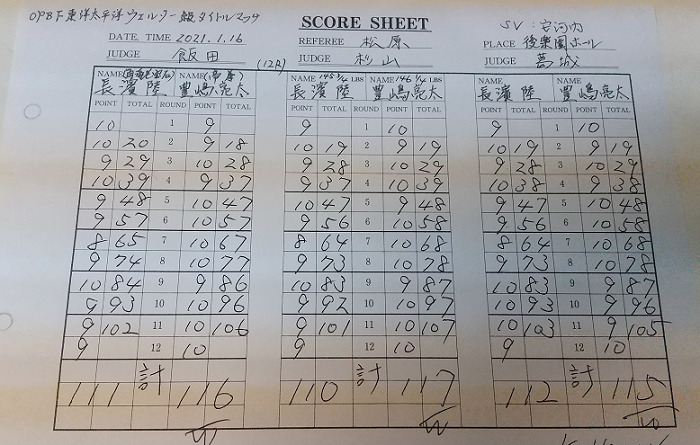 OPBF東洋太平洋ウェルター級タイトルマッチ
SCORE SHEET
SV:安河内
DATE, TIME 2021.1.16
REFEREE 松原
PLACE 後楽園ホール
JUDGE 飯田
(12R)
JUDGE 杉山
JUDGE 葛城
NAME NAME(帝拳) NAME 145 1/4 LBS NAME 146 1/4 LBS NAME NAME
長濱 陸 豊嶋亮太 長濱 陸 豊嶋亮太 長濱 陸 豊嶋亮太
POINT TOTAL ROUND POINT TOTAL POINT TOTAL ROUND POINT TOTAL POINT TOTAL ROUND POINT TOTAL
10 1 9 9 1 10 9 1 10
10 20 2 9 18 10 19 2 9 19 10 19 2 9 19
9 29 3 10 28 9 28 3 10 29 9 28 3 10 29
10 39 4 9 37 9 37 4 10 39 10 38 4 9 38
9 48 5 10 47 10 47 5 9 48 9 47 5 10 48
9 57 6 10 57 9 56 6 10 58 9 56 6 10 58
8 65 7 10 67 8 64 7 10 68 8 64 7 10 68
9 74 8 10 77 9 73 8 10 78 9 73 8 10 78
10 84 9 9 86 10 83 9 9 87 10 83 9 9 87
9 93 10 10 96 9 92 10 10 97 10 93 10 9 96
9 102 11 10 106 9 101 11 10 107 10 103 11 9 105
9 12 10 9 12 10 9 12 10
111 計 116 110 計 117 112 計 115
W W W